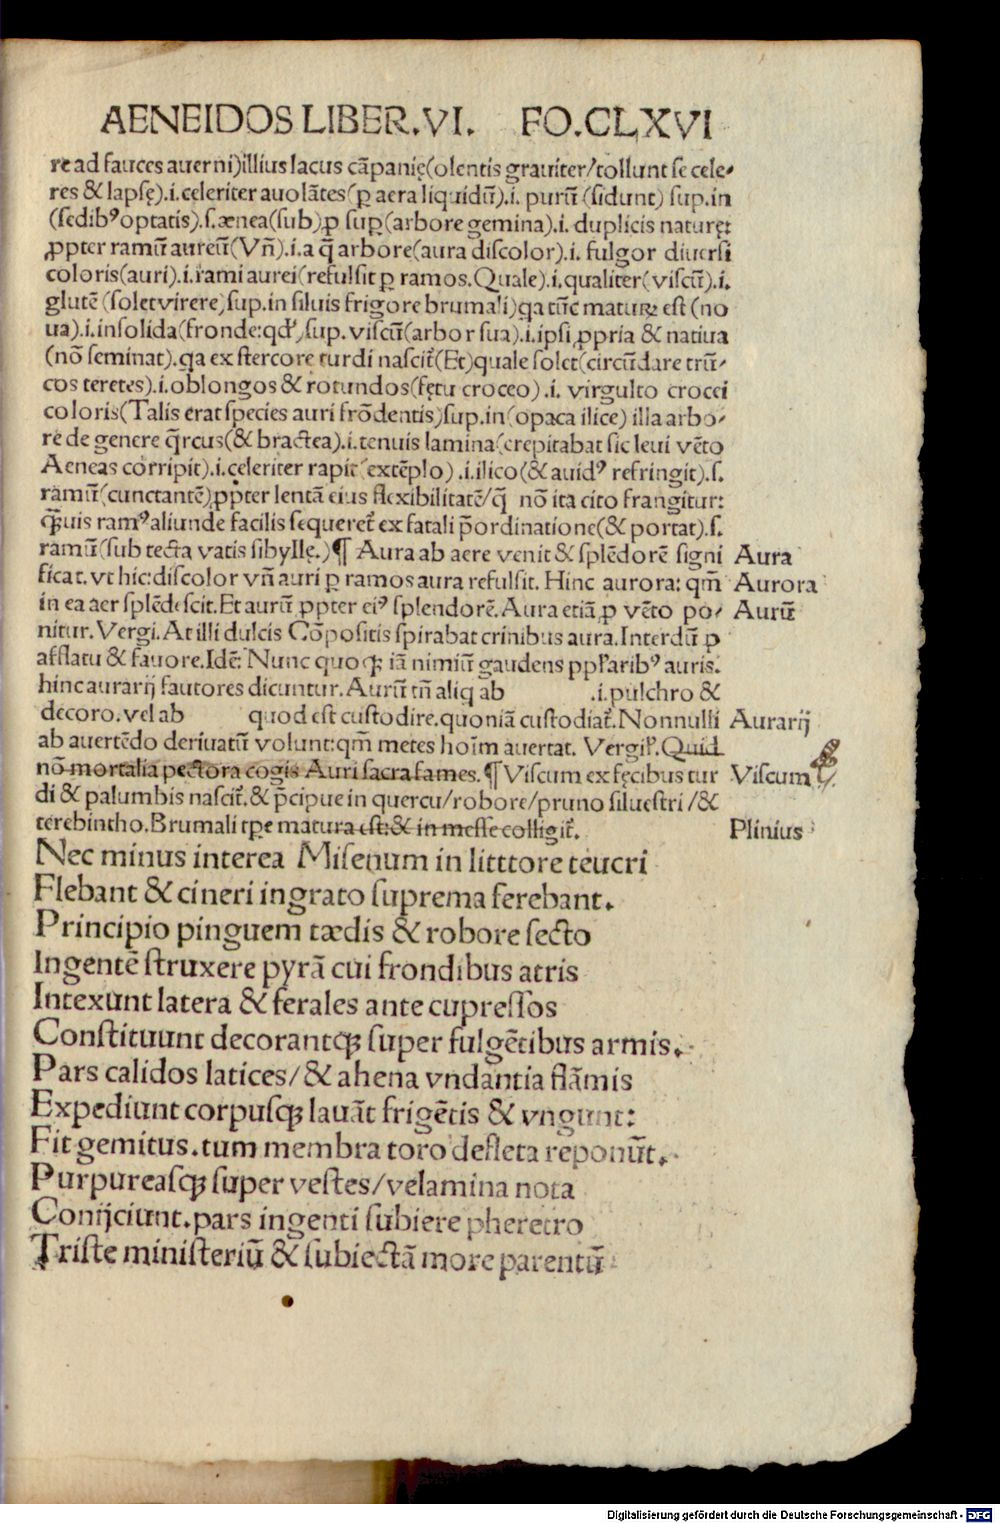 AENEIDOS LIBER.VI. FO.CLXVI
re ad fauces auerni)illius lacus cāpanię(olentis grauiter/tollunt se cele-
res & lapsę).i.celeriter auolātes(ꝑ aera liquidū).i. purū (sidunt) sup.in
(sedibꝰ optatis).s.ænea(sub)ꝓ suꝑ(arbore gemina).i. duplicis naturę:
ꝓpter ramū aureū(Vñ).i.a q̄ arbore(aura discolor).i. fulgor diuersi
coloris(auri).i.rami aurei(refulsit ꝑ ramos.Quale).i.qualiter(viscū).i.
glutē (solet virere)sup.in siluis frigore brumali)qa tūc maturꝫ est (no
ua).i.insolida(fronde:qd')sup. viscū(arbor sua).i.ipsi ꝓpria & natiua
(nō seminat).qa ex stercore turdi nascit̃(Et)quale solet(circūdare trū-
cos teretes).i.oblongos & rotundos(fętu croceo).i. virgulto crocei
coloris(Talis erat species auri frōdentis)sup.in(opaca ilice) illa arbo-
re de genere q̄rcus(& bractea).i.tenuis lamina(crepitabat sic leui vēto
Aeneas corripit).i.celeriter rapit(extēplo).i.ilico(& auidꝰ refringit).s.
ramū(cunctantē)ꝓpter lentā eius flexibilitatē/q̄ nō ita cito frangitur:
q̄uis ramꝰ aliunde facilis sequeret̃ ex fatali p̄ordinatione(& portat).s.
ramū(sub tecta vatis sibyllę.)¶ Aura ab aere venit & splēdorē signi Aura
ficat.vt hic:discolor vñ auri ꝑ ramos aura refulsit. Hinc aurora: qm̄ Aurora
in ea aer splēdescit.Et aurū ꝓpter eiꝰ splendorē.Aura etiā ꝓ vēto po- Aurū
nitur.Vergi.At illi dulcis Cōpositis spirabat crinibus aura.Interdū ꝓ
afflatu & fauore.Idē: Nunc quoqꝫ iā nimiū gaudens ppl'aribꝰ auris.
hinc aurarij fautores dicuntur.Aurū tñ aliq ab .i.pulchro &
decoro.vel ab quod est custodire.quoniā custodiat̃.Nonnulli Aurarij
ab auertēdo deriuatū volunt:qm̄ mētes hoīm auertat. Vergil'.Quid
nō mortalia pectora cogis Auri sacra fames.¶ Viscum ex fęcibus tur Viscum
di & palumbis nascit̃.& p̄cipue in quercu/robore/pruno siluestri/&
terebintho.Brumali tꝑe matura est:& in messe colligit̃. Plinius
Nec minus interea Misenum in litttore teucri
Flebant & cineri ingrato suprema ferebant.
Principio pinguem tædis & robore secto
Ingentē struxere pyrā cui frondibus atris
Intexunt latera & ferales ante cupressos
Constituunt decorantqꝫ super fulgētibus armis.
Pars calidos latices/& ahena vndantia flāmis
Expediunt corpusqꝫ lauāt frigētis & vngunt:
Fit gemitus.tum membra toro defleta reponūt.
Purpureasqꝫ super vestes/velamina nota
Conijciunt.pars ingenti subiere pheretro
Triste ministeriū & subiectā more parentū
Digitalisierung gefördert durch die Deutsche Forschungsgemeinschaft - DFG